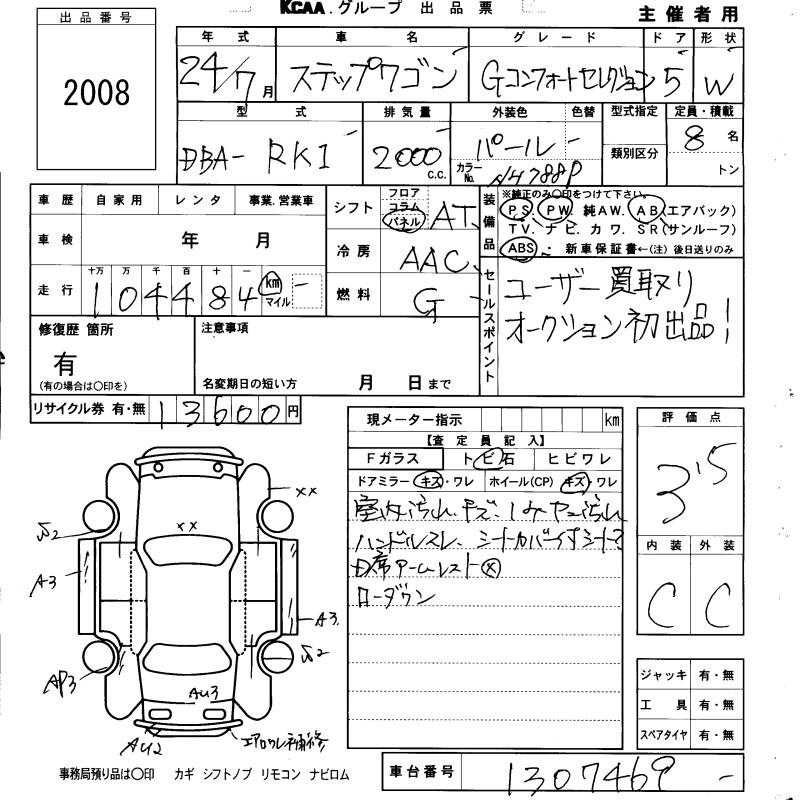 KCAA.グループ 出品票 主催者用
出品番号
2008
年式 車名 グレード ドア 形状
24/7月 ステップワゴン Gコンフォートセレクション 5 W
型式 排気量 外装色 色替 型式指定 定員・積載
DBA- RK1 2000 c.c. パール 類別区分 8名
カラーNo. NH788P トン
車歴 自家用 レンタ 事業.営業車
車検 年 月
走行 十万 万 千 百 十 一
104484 km マイル
シフト フロア コラム パネル AT
冷房 AAC
燃料 G
装備品 ※純正のみ○印をつけて下さい。
PS. PW. 純AW. AB(エアバック)
TV. ナビ. カワ. SR(サンルーフ)
ABS. 新車保証書←(注) 後日送りのみ
セールスポイント
ユーザー買取り
オークション初出品!
修復歴 箇所
有
(有の場合は○印を)
注意事項
名変期日の短い方 月 日まで
リサイクル券 有・無 13600円
現メーター指示 km
【査定員記入】
Fガラス トビ石 ヒビワレ
ドアミラー キズ・ワレ ホイール(CP) キズ・ワレ
室内汚れ.キズ.
ハンドルスレ、シートカバー付
席アームレスト
ローダウン
評価点
3.5
内装 外装
C C
ジャッキ 有・無
工具 有・無
スペアタイヤ 有・無
xx
xx
A3
A3
AP3
AU3
AU2
エアロワレ補修
事務局預り品は○印 カギ シフトノブ リモコン ナビロム
車台番号 1307469 -